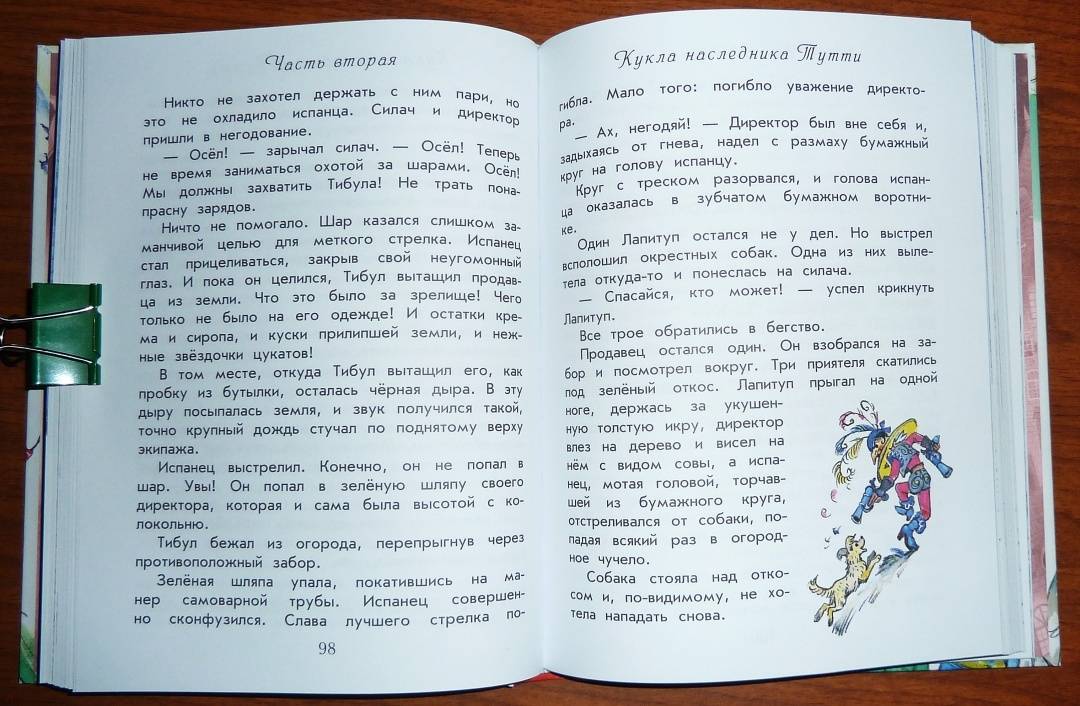 Часть вторая
Никто не захотел держать с ним пари, но
это не охладило испанца. Силач и директор
пришли в негодование.
— Осёл! — зарычал силач. — Осёл! Теперь
не время заниматься охотой за шарами. Осёл!
Мы должны захватить Тибула! Не трать пона-
прасну зарядов.
Ничто не помогало. Шар казался слишком за-
манчивой целью для меткого стрелка. Испанец
стал прицеливаться, закрыв свой неугомонный
глаз. И пока он целился, Тибул вытащил продав-
ца из земли. Что это было за зрелище! Чего
только не было на его одежде! И остатки кре-
ма и сиропа, и куски прилипшей земли, и неж-
ные звёздочки цукатов!
В том месте, откуда Тибул вытащил его, как
пробку из бутылки, осталась чёрная дыра. В эту
дыру посыпалась земля, и звук получился такой,
точно крупный дождь стучал по поднятому верху
экипажа.
Испанец выстрелил. Конечно, он не попал в
шар. Увы! Он попал в зелёную шляпу своего
директора, которая и сама была высотой с ко-
локольню.
Тибул бежал из огорода, перепрыгнув через
противоположный забор.
Зелёная шляпа упала, покатившись на ма-
нер самоварной трубы. Испанец совершен-
но сконфузился. Слава лучшего стрелка по-
98
Кукла наследника Тутти
гибла. Мало того: погибло уважение директо-
ра.
— Ах, негодяй! — Директор был вне себя и,
задыхаясь от гнева, надел с размаху бумажный
круг на голову испанцу.
Круг с треском разорвался, и голова испан-
ца оказалась в зубчатом бумажном воротни-
ке.
Один Лапитуп остался не у дел. Но выстрел
всполошил окрестных собак. Одна из них выле-
тела откуда-то и понеслась на силача.
— Спасайся, кто может! — успел крикнуть
Лапитуп.
Все трое обратились в бегство.
Продавец остался один. Он взобрался на за-
бор и посмотрел вокруг. Три приятеля скатились
под зелёный откос. Лапитуп прыгал на одной
ноге, держась за укушен-
ную толстую икру, директор
влез на дерево и висел на
нём с видом совы, а испа-
нец, мотая головой, торчав-
шей из бумажного круга,
отстреливался от собаки, по-
падая всякий раз в огород-
ное чучело.
Собака стояла над отко-
сом и, по-видимому, не хо-
тела нападать снова.